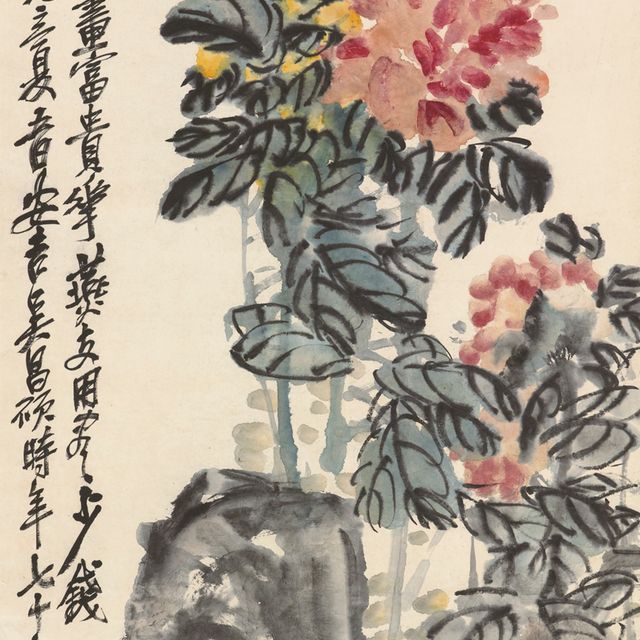 畫富貴華燕支用盡少錢
三夏 安吉吳昌碩時年七十